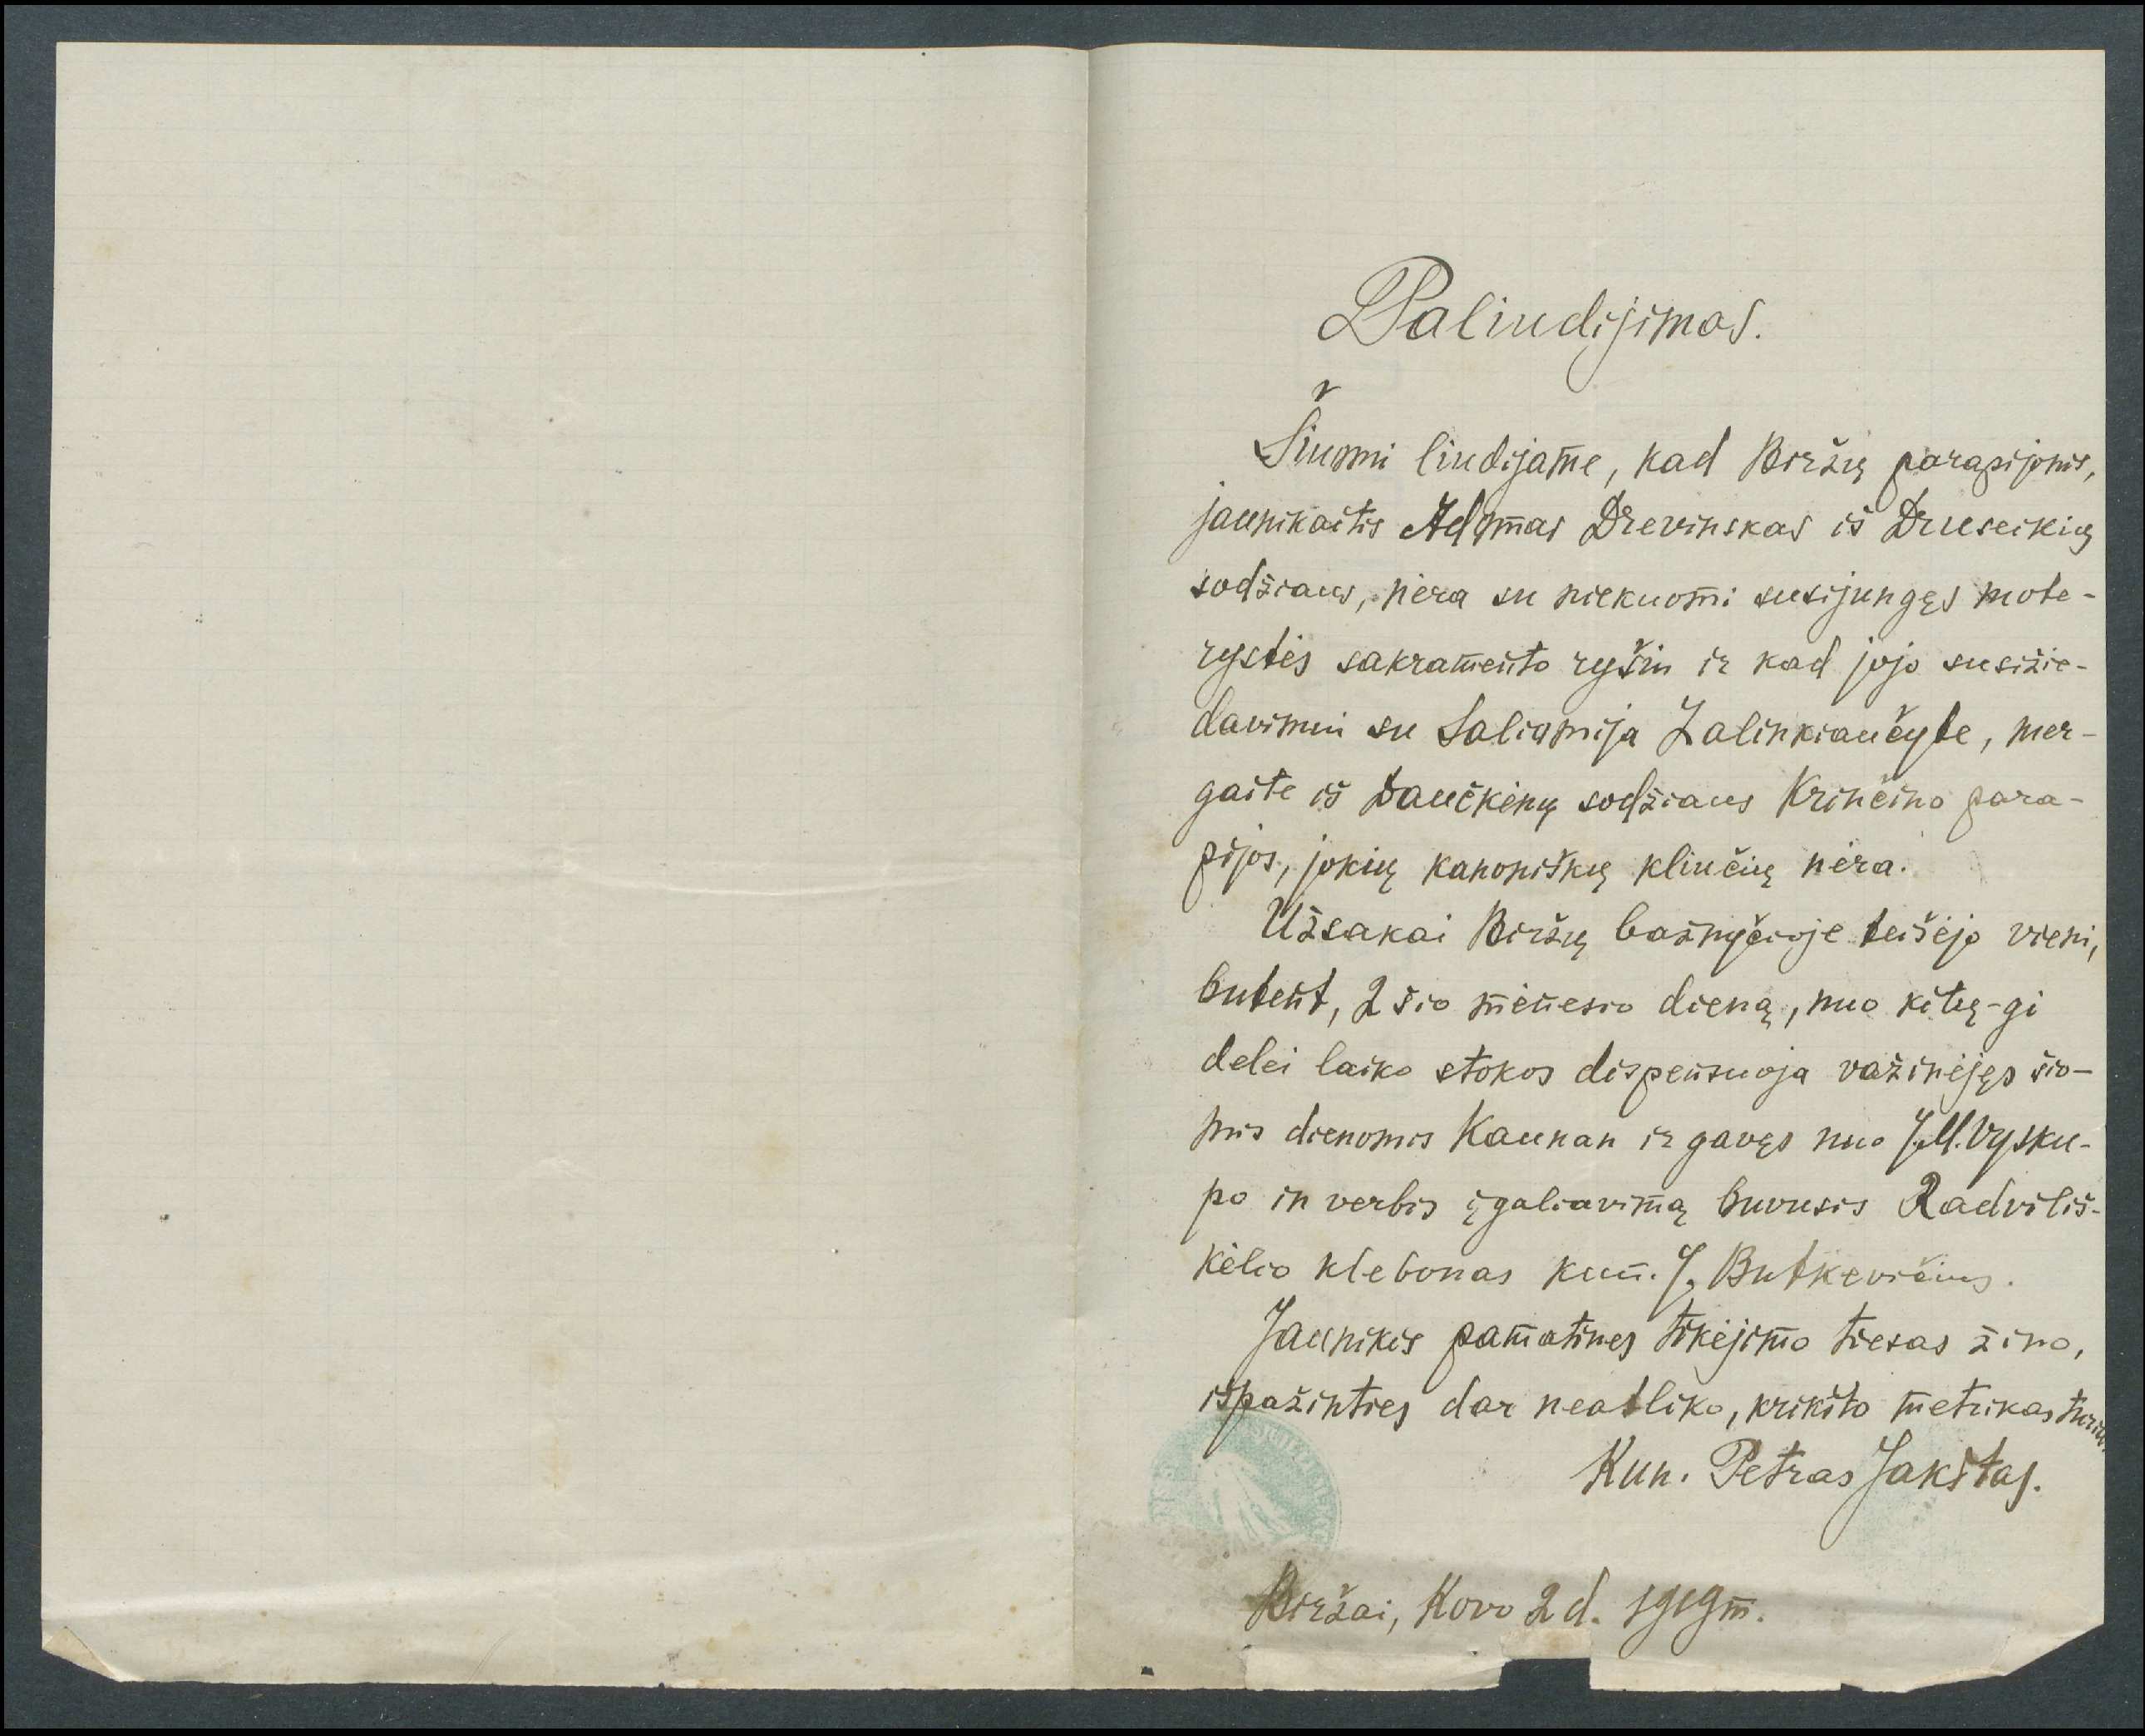 Paliudijimas.
Šiuomi liudijame, kad Biržų parapijonis,
jaunikaitis Adomas Drevinskas iš Druseikių
sodžiaus, nėra su niekuomi susijungęs mote-
rystės sakramento ryšiu ir kad jojo susižie-
davimui su Saliamija Zalinkiaučyte, mer-
gaite iš Daučkėnų sodžiaus Krinčino para-
pijos, jokių kanoniškų kliučių nėra.
Užsakai Biržų bažnyčioje teišėjo vieni,
butent, 2 šio mėnesio dieną, nuo kitų-gi
delei laiko stokos dispensuoja važinėjęs šio-
mis dienomis Kaunan ir gavęs nuo J.M. Vysku-
po in verbis įgaliavimą buvusis Radviliš-
kėlio klebonas kun. J. Butkevičius.
Jaunikis pamatines tikėjimo tiesas žino,
išpažinties dar neatliko, krikšto metrikas
Kun. Petras Jakštas.
Biržai, Kovo 2 d. 1919 m.